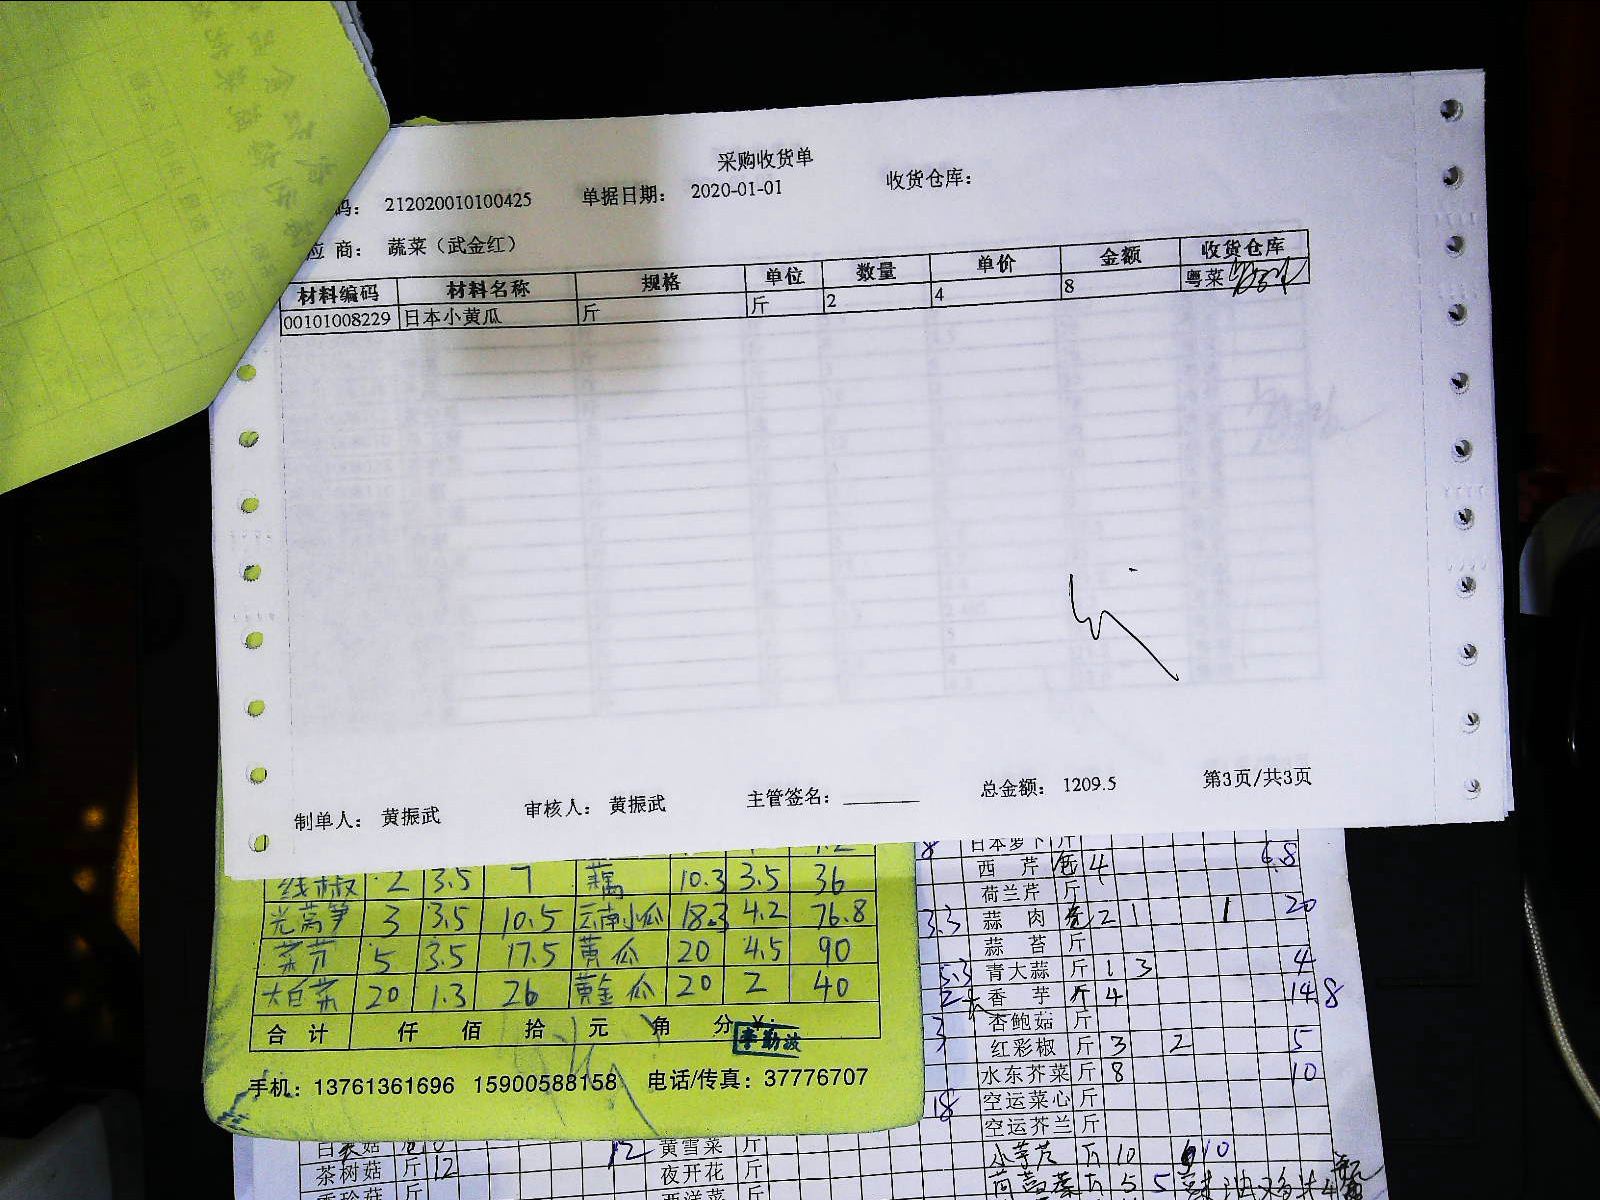 采购收货单
码： 212020010100425 单据日期： 2020-01-01 收货仓库：
应 商： 蔬菜（武金红）
材料编码 材料名称 规格 单位 数量 单价 金额 收货仓库
00101008229 日本小黄瓜 斤 斤 2 4 8 粤菜
制单人： 黄振武 审核人： 黄振武 主管签名： 总金额： 1209.5 第3页/共3页
线椒 2 3.5 7 藕 10.3 3.5 36
光莴笋 3 3.5 10.5 云南小瓜 18.3 4.2 76.8
菜芥 5 3.5 17.5 黄瓜 20 4.5 90
大白菜 20 1.3 26 黄金瓜 20 2 40
合 计 仟 佰 拾 元 角 分
手机：13761361696 15900588158 电话/传真：37776707
日本萝卜 斤
西 芹 4 6.8
荷兰芹 斤
3.3 蒜 肉 2 1 1 20
蒜 苔 斤
5.3 青大蒜 斤 1 3 4
香 芋 斤 4 14 8
杏鲍菇 斤
红彩椒 斤 3 2 5
水东芥菜 斤 8 10
18 空运菜心 斤
空运芥兰 斤
12 黄雪菜 斤 小芋艿 斤 10 10
茶树菇 斤 12 夜开花 斤 茼蒿菜 斤 5 5
西洋菜 斤